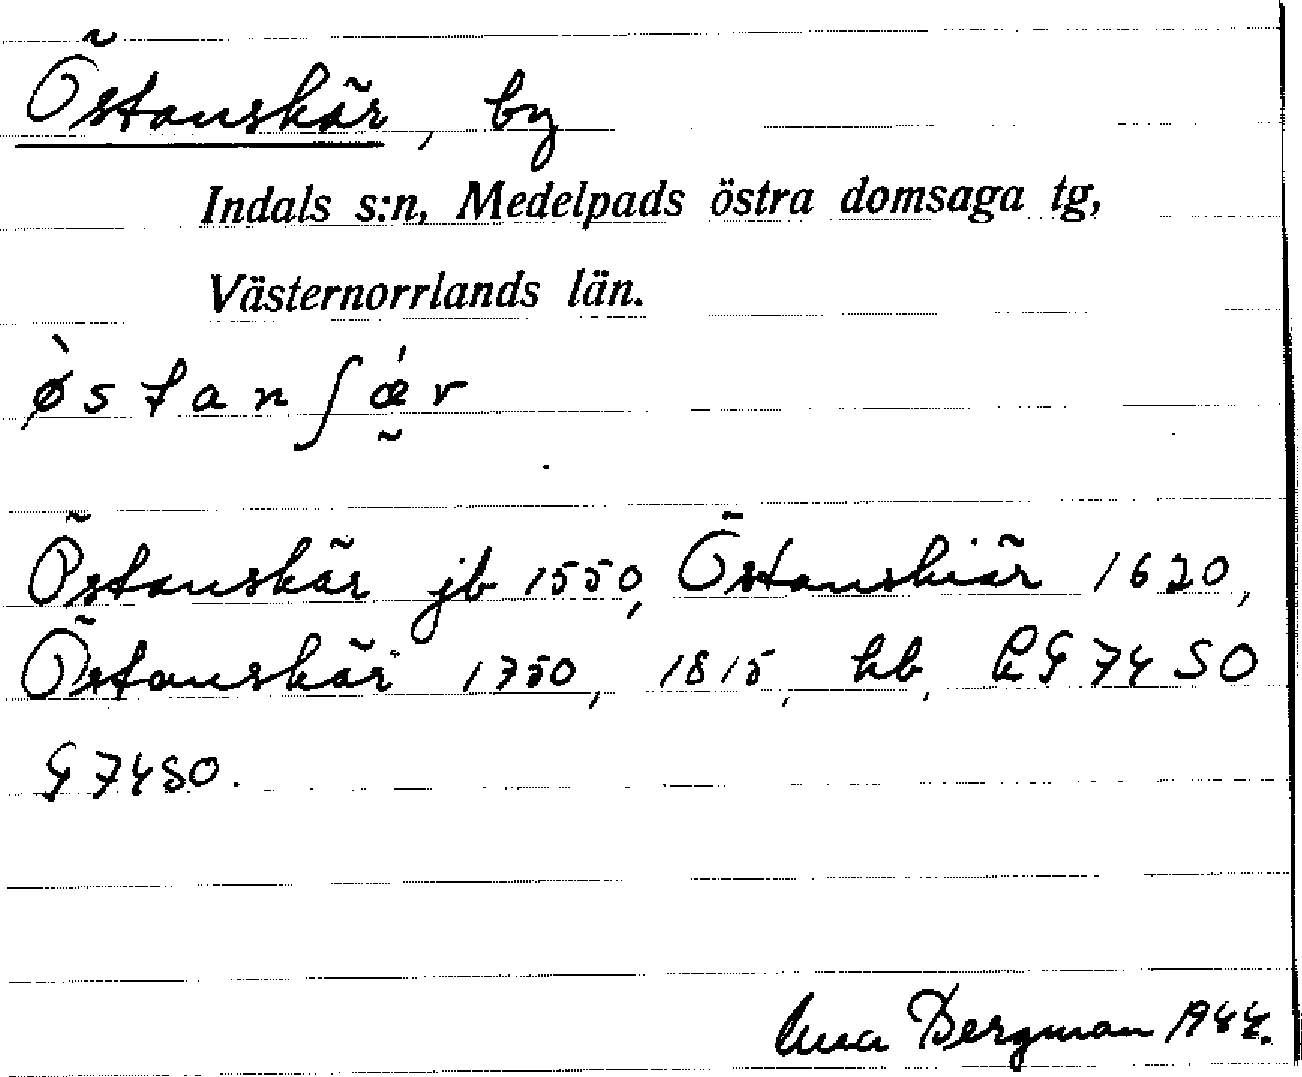 Östanskär, by
Indals s:n, Medelpads östra domsaga tg,
Västernorrlands län.
ø̀stanʃǽ̰r
Östanskär jb 1550, Östanskiär 1620,
Östanskär 1750, 1815, kb, RG 74 SO
G 74 SO.
Bergman 1944.